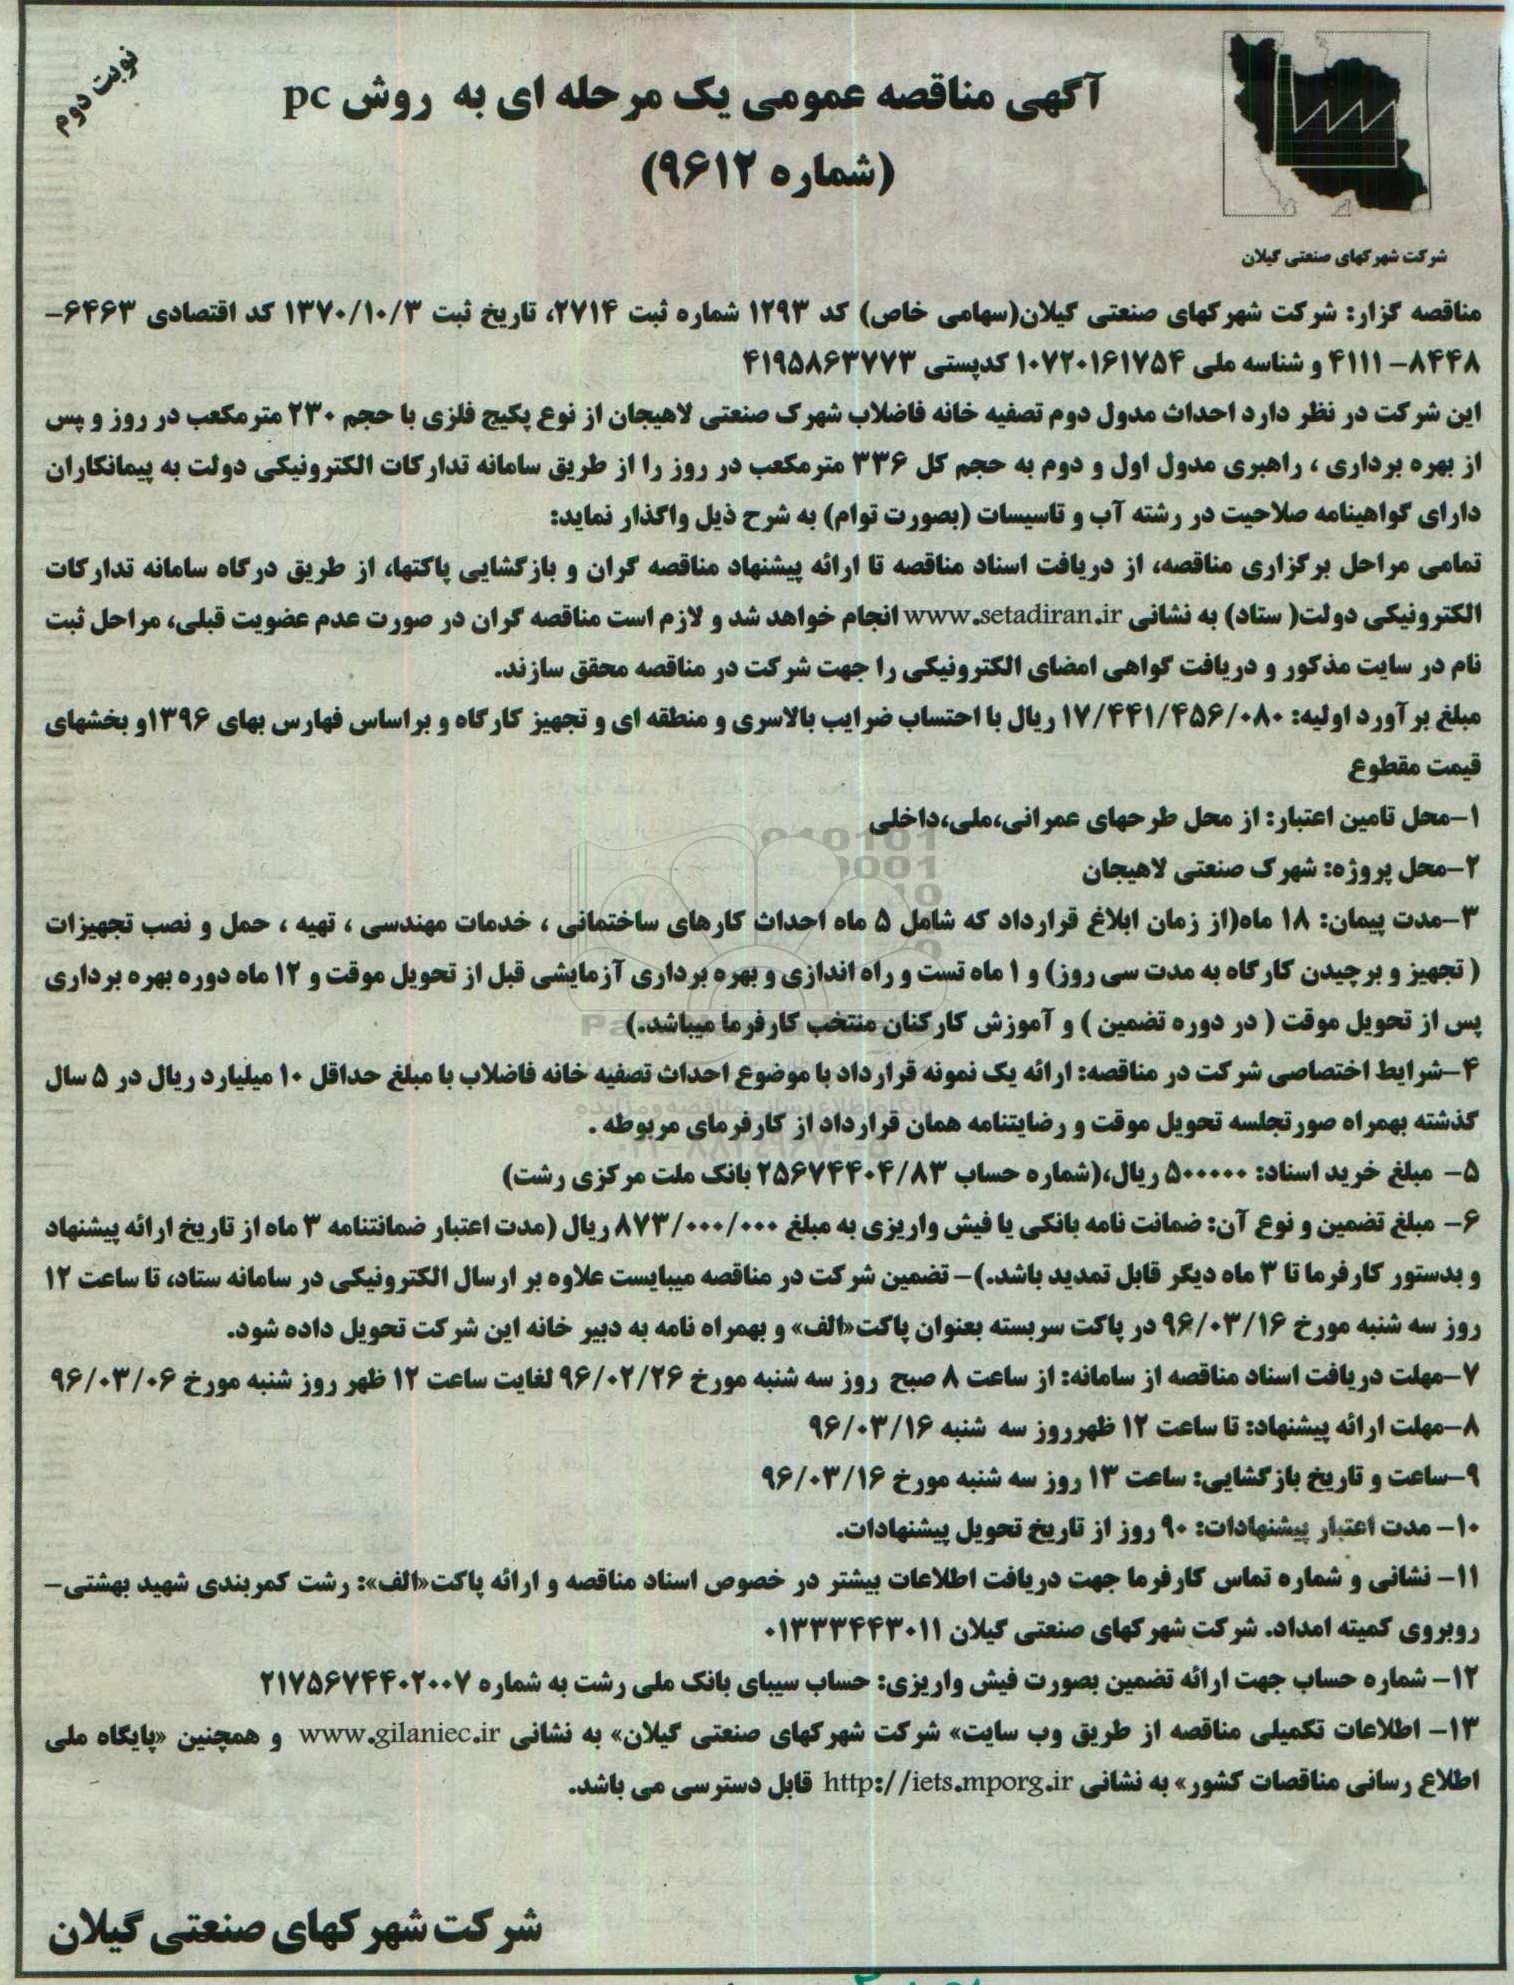 نوبت دوم
آگهی مناقصه عمومی یک مرحله ای به روش pc
(شماره ۹۶۱۲)
شرکت شهرکهای صنعتی گیلان
مناقصه گزار: شرکت شهرکهای صنعتی گیلان(سهامی خاص) کد ۱۲۹۳ شماره ثبت ۲۷۱۴، تاریخ ثبت ۱۳۷۰/۱۰/۳ کد اقتصادی ۶۴۶۳-
۸۴۴۸- ۴۱۱۱ و شناسه ملی ۱۰۷۲۰۱۶۱۷۵۴ کدپستی ۴۱۹۵۸۶۳۷۷۳
این شرکت در نظر دارد احداث مدول دوم تصفیه خانه فاضلاب شهرک صنعتی لاهیجان از نوع پکیج فلزی با حجم ۲۳۰ مترمکعب در روز و پس
از بهره برداری ، راهبری مدول اول و دوم به حجم کل ۳۳۶ مترمکعب در روز را از طریق سامانه تدارکات الکترونیکی دولت به پیمانکاران
دارای گواهینامه صلاحیت در رشته آب و تاسیسات (بصورت توام) به شرح ذیل واگذار نماید:
تمامی مراحل برگزاری مناقصه، از دریافت اسناد مناقصه تا ارائه پیشنهاد مناقصه گران و بازگشایی پاکتها، از طریق درگاه سامانه تدارکات
الکترونیکی دولت( ستاد) به نشانی www.setadiran.ir انجام خواهد شد و لازم است مناقصه گران در صورت عدم عضویت قبلی، مراحل ثبت
نام در سایت مذکور و دریافت گواهی امضای الکترونیکی را جهت شرکت در مناقصه محقق سازند.
مبلغ برآورد اولیه: ۱۷/۴۴۱/۴۵۶/۰۸۰ ریال با احتساب ضرایب بالاسری و منطقه ای و تجهیز کارگاه و براساس فهارس بهای ۱۳۹۶و بخشهای
قیمت مقطوع
۱-محل تامین اعتبار: از محل طرحهای عمرانی،ملی،داخلی
۲-محل پروژه: شهرک صنعتی لاهیجان
۳-مدت پیمان: ۱۸ ماه(از زمان ابلاغ قرارداد که شامل ۵ ماه احداث کارهای ساختمانی ، خدمات مهندسی ، تهیه ، حمل و نصب تجهیزات
( تجهیز و برچیدن کارگاه به مدت سی روز) و ۱ ماه تست و راه اندازی و بهره برداری آزمایشی قبل از تحویل موقت و ۱۲ ماه دوره بهره برداری
پس از تحویل موقت ( در دوره تضمین ) و آموزش کارکنان منتخب کارفرما میباشد.)
۴-شرایط اختصاصی شرکت در مناقصه: ارائه یک نمونه قرارداد با موضوع احداث تصفیه خانه فاضلاب با مبلغ حداقل ۱۰ میلیارد ریال در ۵ سال
گذشته بهمراه صورتجلسه تحویل موقت و رضایتنامه همان قرارداد از کارفرمای مربوطه .
۵- مبلغ خرید اسناد: ۵۰۰۰۰۰ ریال،(شماره حساب ۲۵۶۷۴۴۰۴/۸۳ بانک ملت مرکزی رشت)
۶- مبلغ تضمین و نوع آن: ضمانت نامه بانکی یا فیش واریزی به مبلغ ۸۷۳/۰۰۰/۰۰۰ ریال (مدت اعتبار ضمانتنامه ۳ ماه از تاریخ ارائه پیشنهاد
و بدستور کارفرما تا ۳ ماه دیگر قابل تمدید باشد.)- تضمین شرکت در مناقصه میبایست علاوه بر ارسال الکترونیکی در سامانه ستاد، تا ساعت ۱۲
روز سه شنبه مورخ ۹۶/۰۳/۱۶ در پاکت سربسته بعنوان پاکت«الف» و بهمراه نامه به دبیر خانه این شرکت تحویل داده شود.
۷-مهلت دریافت اسناد مناقصه از سامانه: از ساعت ۸ صبح روز سه شنبه مورخ ۹۶/۰۲/۲۶ لغایت ساعت ۱۲ ظهر روز شنبه مورخ ۹۶/۰۳/۰۶
۸-مهلت ارائه پیشنهاد: تا ساعت ۱۲ ظهرروز سه شنبه ۹۶/۰۳/۱۶
۹-ساعت و تاریخ بازگشایی: ساعت ۱۳ روز سه شنبه مورخ ۹۶/۰۳/۱۶
۱۰- مدت اعتبار پیشنهادات: ۹۰ روز از تاریخ تحویل پیشنهادات.
۱۱- نشانی و شماره تماس کارفرما جهت دریافت اطلاعات بیشتر در خصوص اسناد مناقصه و ارائه پاکت«الف»: رشت کمربندی شهید بهشتی-
روبروی کمیته امداد. شرکت شهرکهای صنعتی گیلان ۰۱۳۳۳۴۴۳۰۱۱
۱۲- شماره حساب جهت ارائه تضمین بصورت فیش واریزی: حساب سیبای بانک ملی رشت به شماره ۲۱۷۵۶۷۴۴۰۲۰۰۷
۱۳- اطلاعات تکمیلی مناقصه از طریق وب سایت» شرکت شهرکهای صنعتی گیلان» به نشانی www.gilaniec.ir و همچنین «پایگاه ملی
اطلاع رسانی مناقصات کشور» به نشانی http://iets.mporg.ir قابل دسترسی می باشد.
شرکت شهرکهای صنعتی گیلان